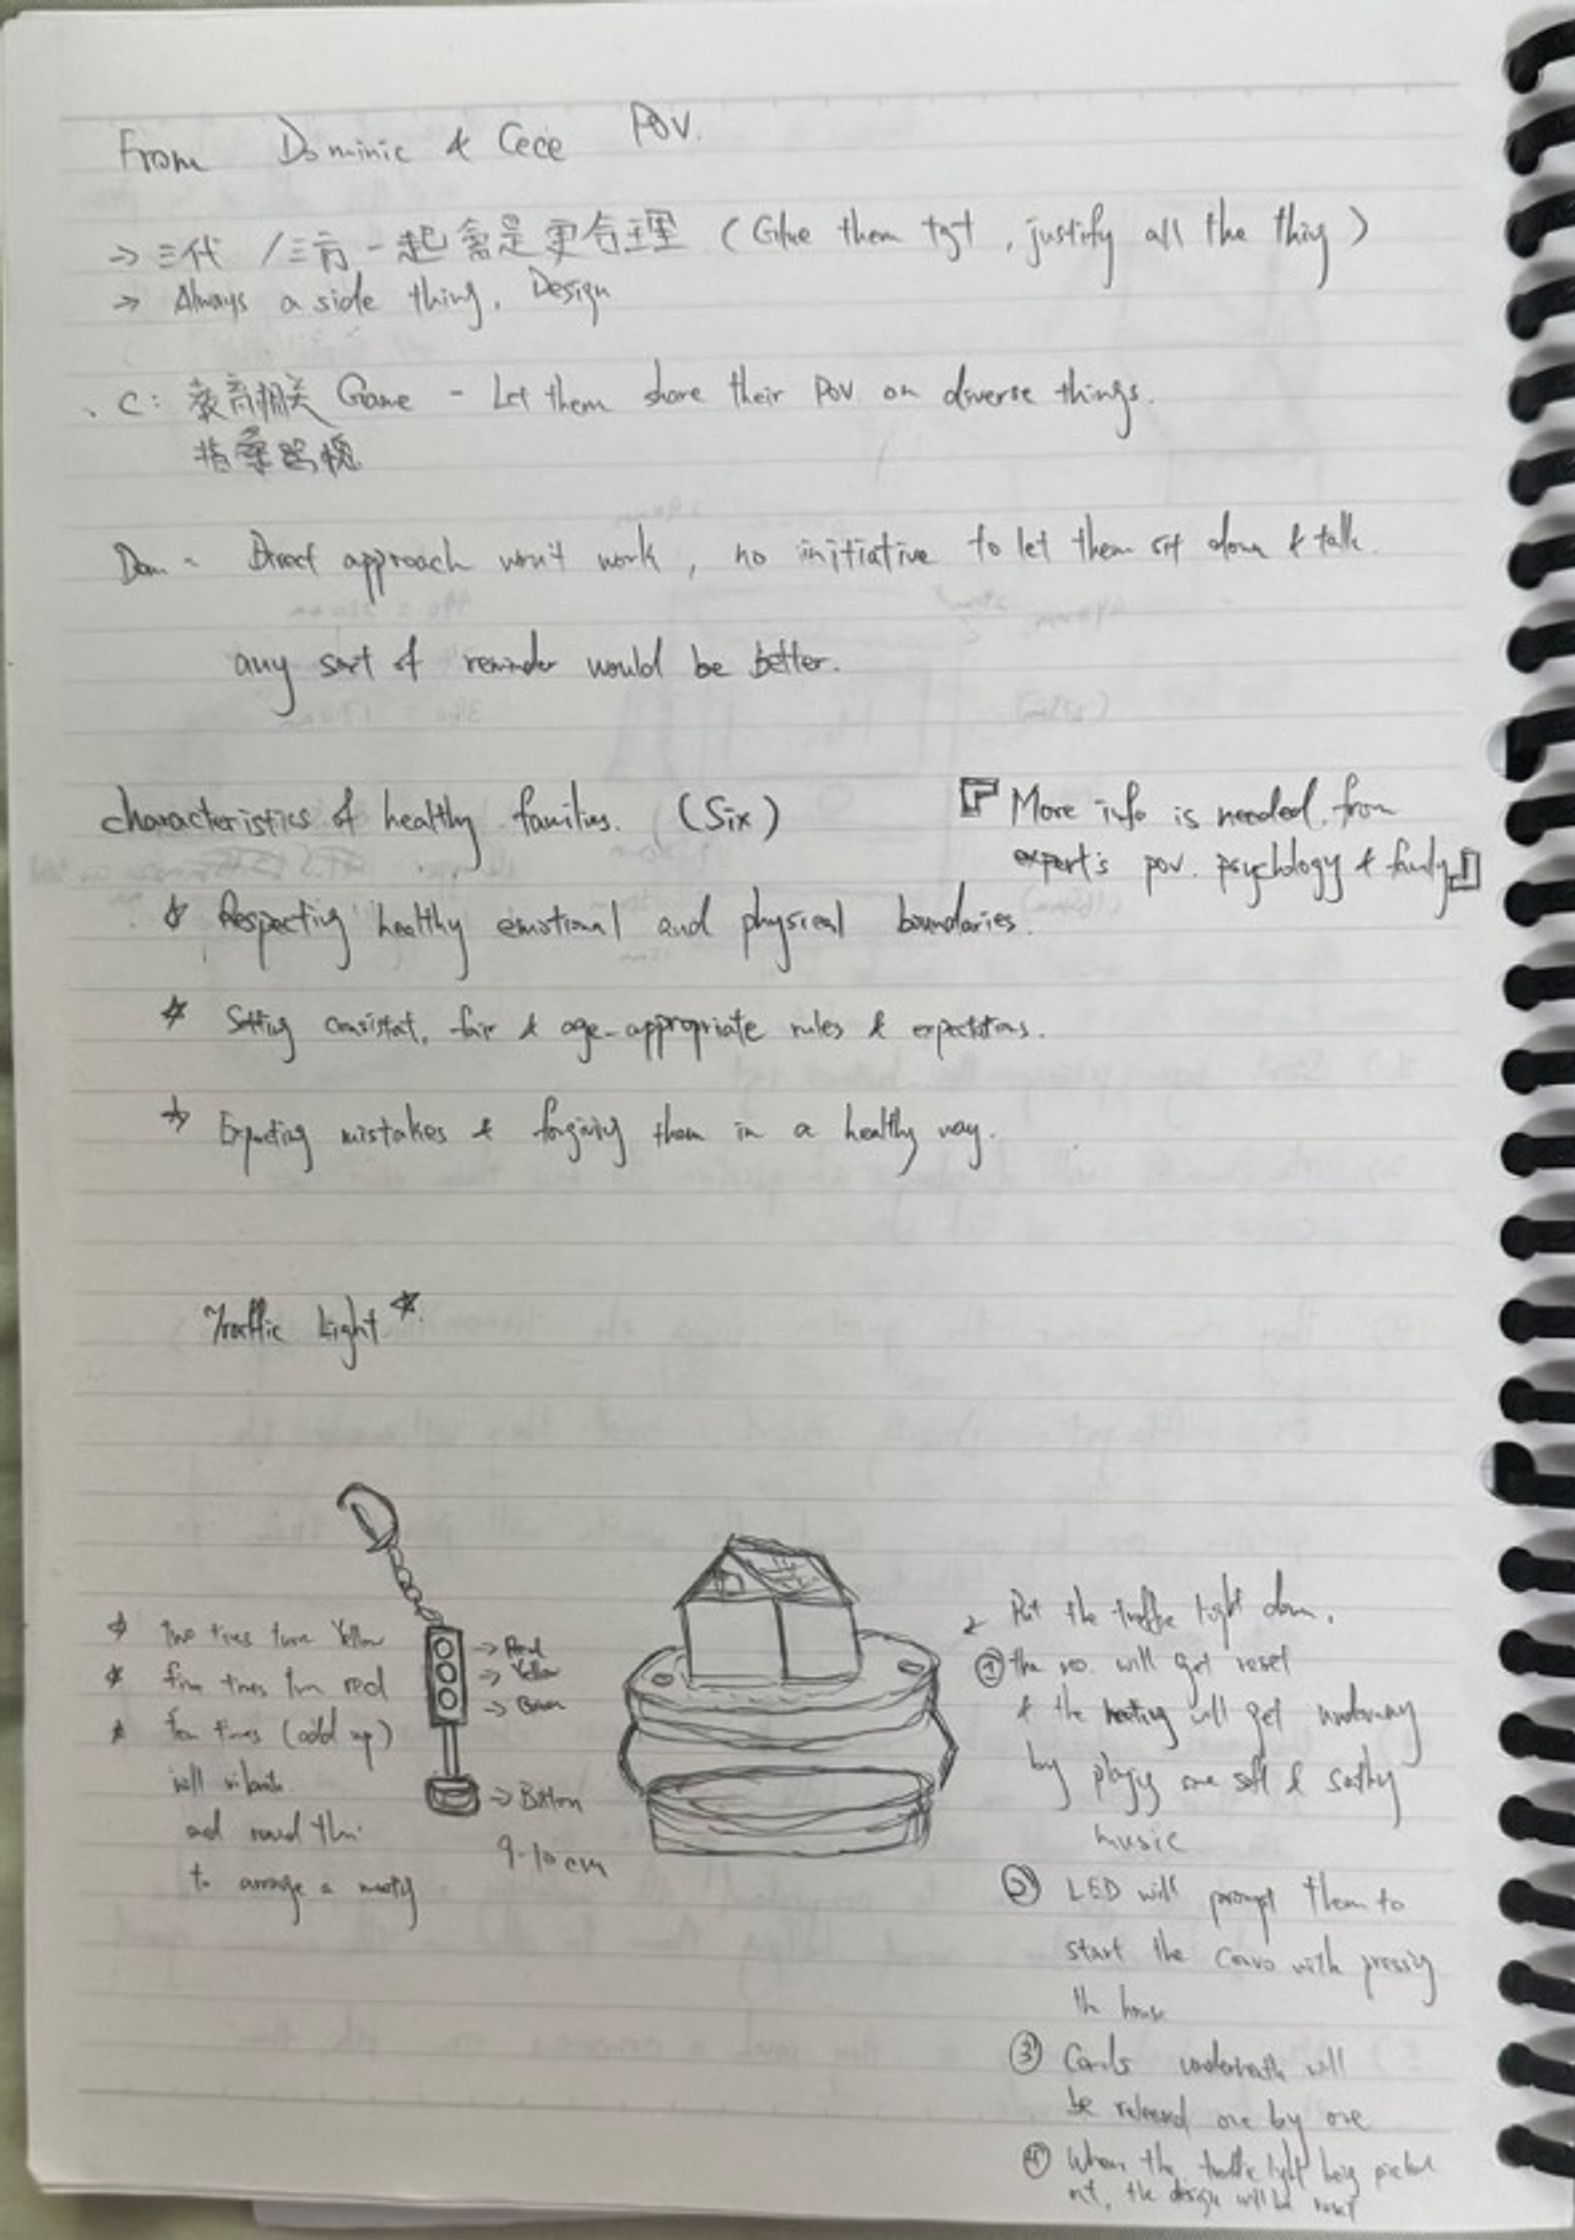 From Dominic & Cece POV.
→ 三代 /三方 一起會是更合理 (Glue them tgt , justify all the thing)
→ Always a side thing. Design
. C: 教育相关 Game - Let them share their POV on diverse things.
指桑罵槐
Dom - Direct approach won't work , no initiative to let them sit down & talk.
any sort of reminder would be better.
characteristics of healthy families. (Six)
『 More info is needed. from
expert's pov. psychology & family 』
☆ Respecting healthy emotional and physical boundaries.
☆ Setting consistat, fair & age-appropriate rules & expectations.
☆ Expecting mistakes & forgiving them in a healthy way.
Traffic Light ☆
☆ Two times turn Yellow
☆ five times turn red
☆ ten times (add up)
will vibrate
and remind them
to arrange a meeting
→ Red
→ Yellow
→ Green
→ Button
9-10 cm
Put the traffic light down.
① the no. will get reset
& the meeting will get underway
by playing some soft & soothing
music
② LED will prompt them to
start the convo with pressing
the house
③ Cards underneath will
be released one by one
④ When the traffic light being picked
out, the design will be reset